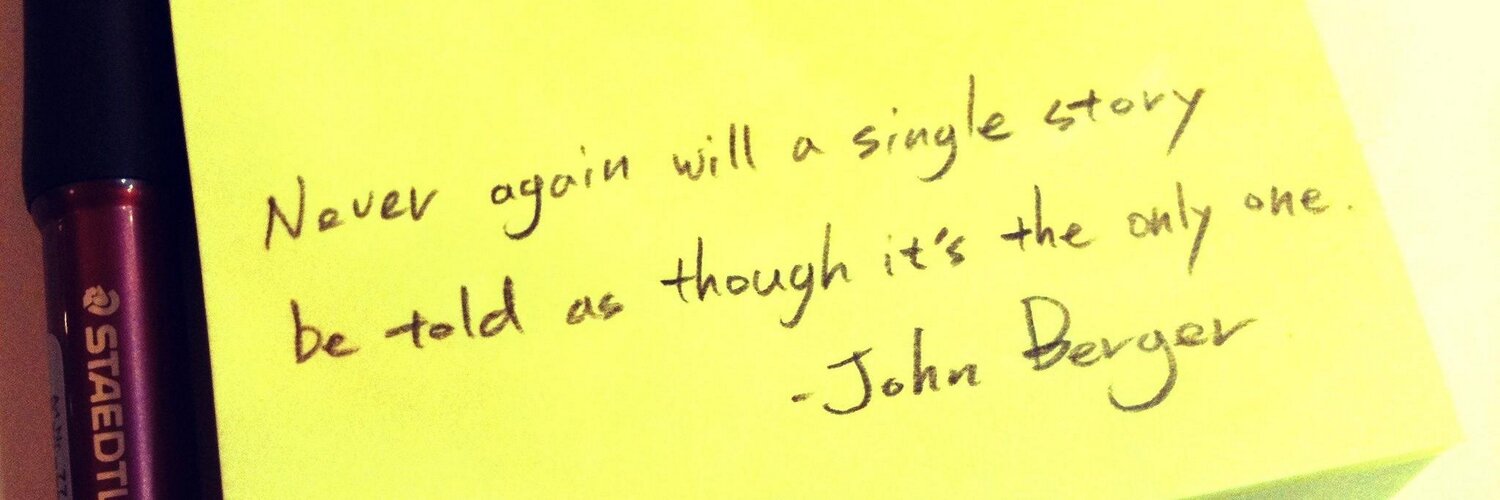 Never again will a single story
be told as though it's the only one.
-John Berger
STAEDTL